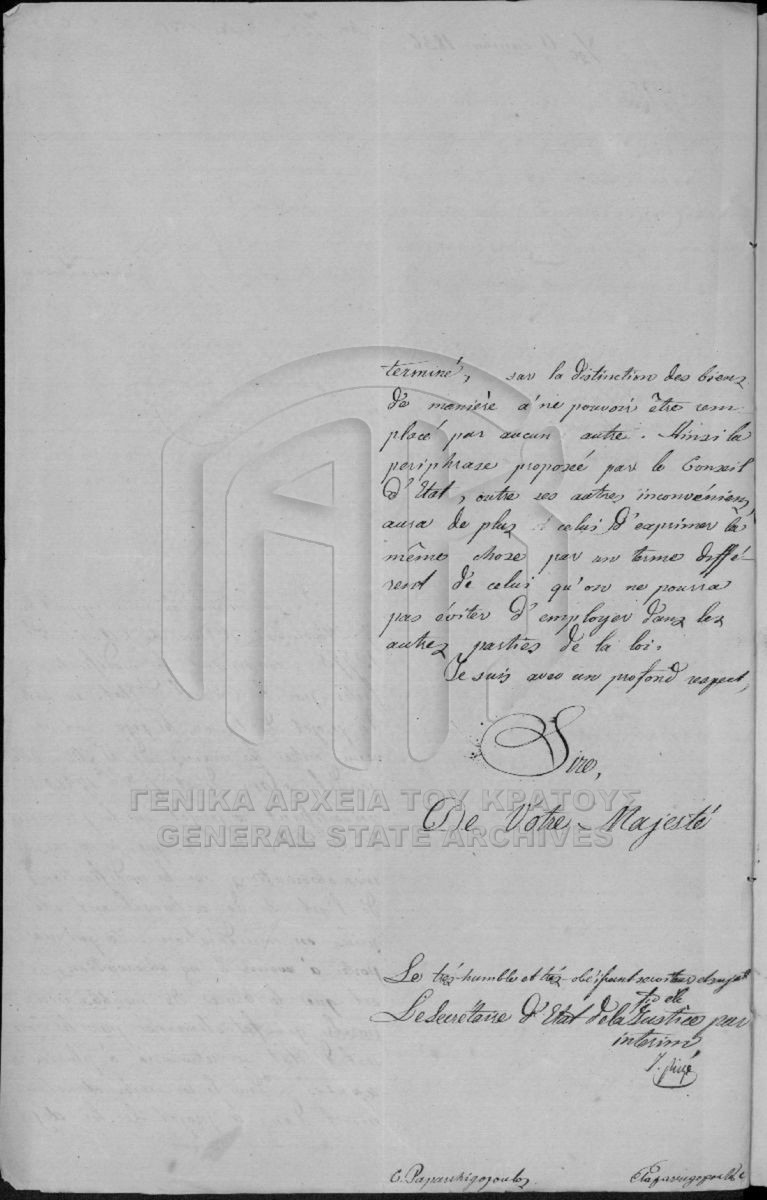 terminé, sur la distinction des biens
de manière à ne pouvoir être rem-
placé par aucun autre. Ainsi la
periphrase proposée par le Conseil
d'Etat, outre ses autres inconvéniens
aura de plus celui d'exprimer la
même chose par un terme diffé-
rent de celui qu'on ne pourra
pas éviter d'employer dans les
autres parties de la loi.
Je suis avec un profond respect,
Sire,
De Votre Majesté
ΓΕΝΙΚΑ ΑΡΧΕΙΑ ΤΟΥ ΚΡΑΤΟΥΣ
GENERAL STATE ARCHIVES
Le très-humble et très-obéissant serviteur et sujet
fidèle
Le Secrétaire d'Etat de la Justice par
interim
C. Paparrhigopoulos